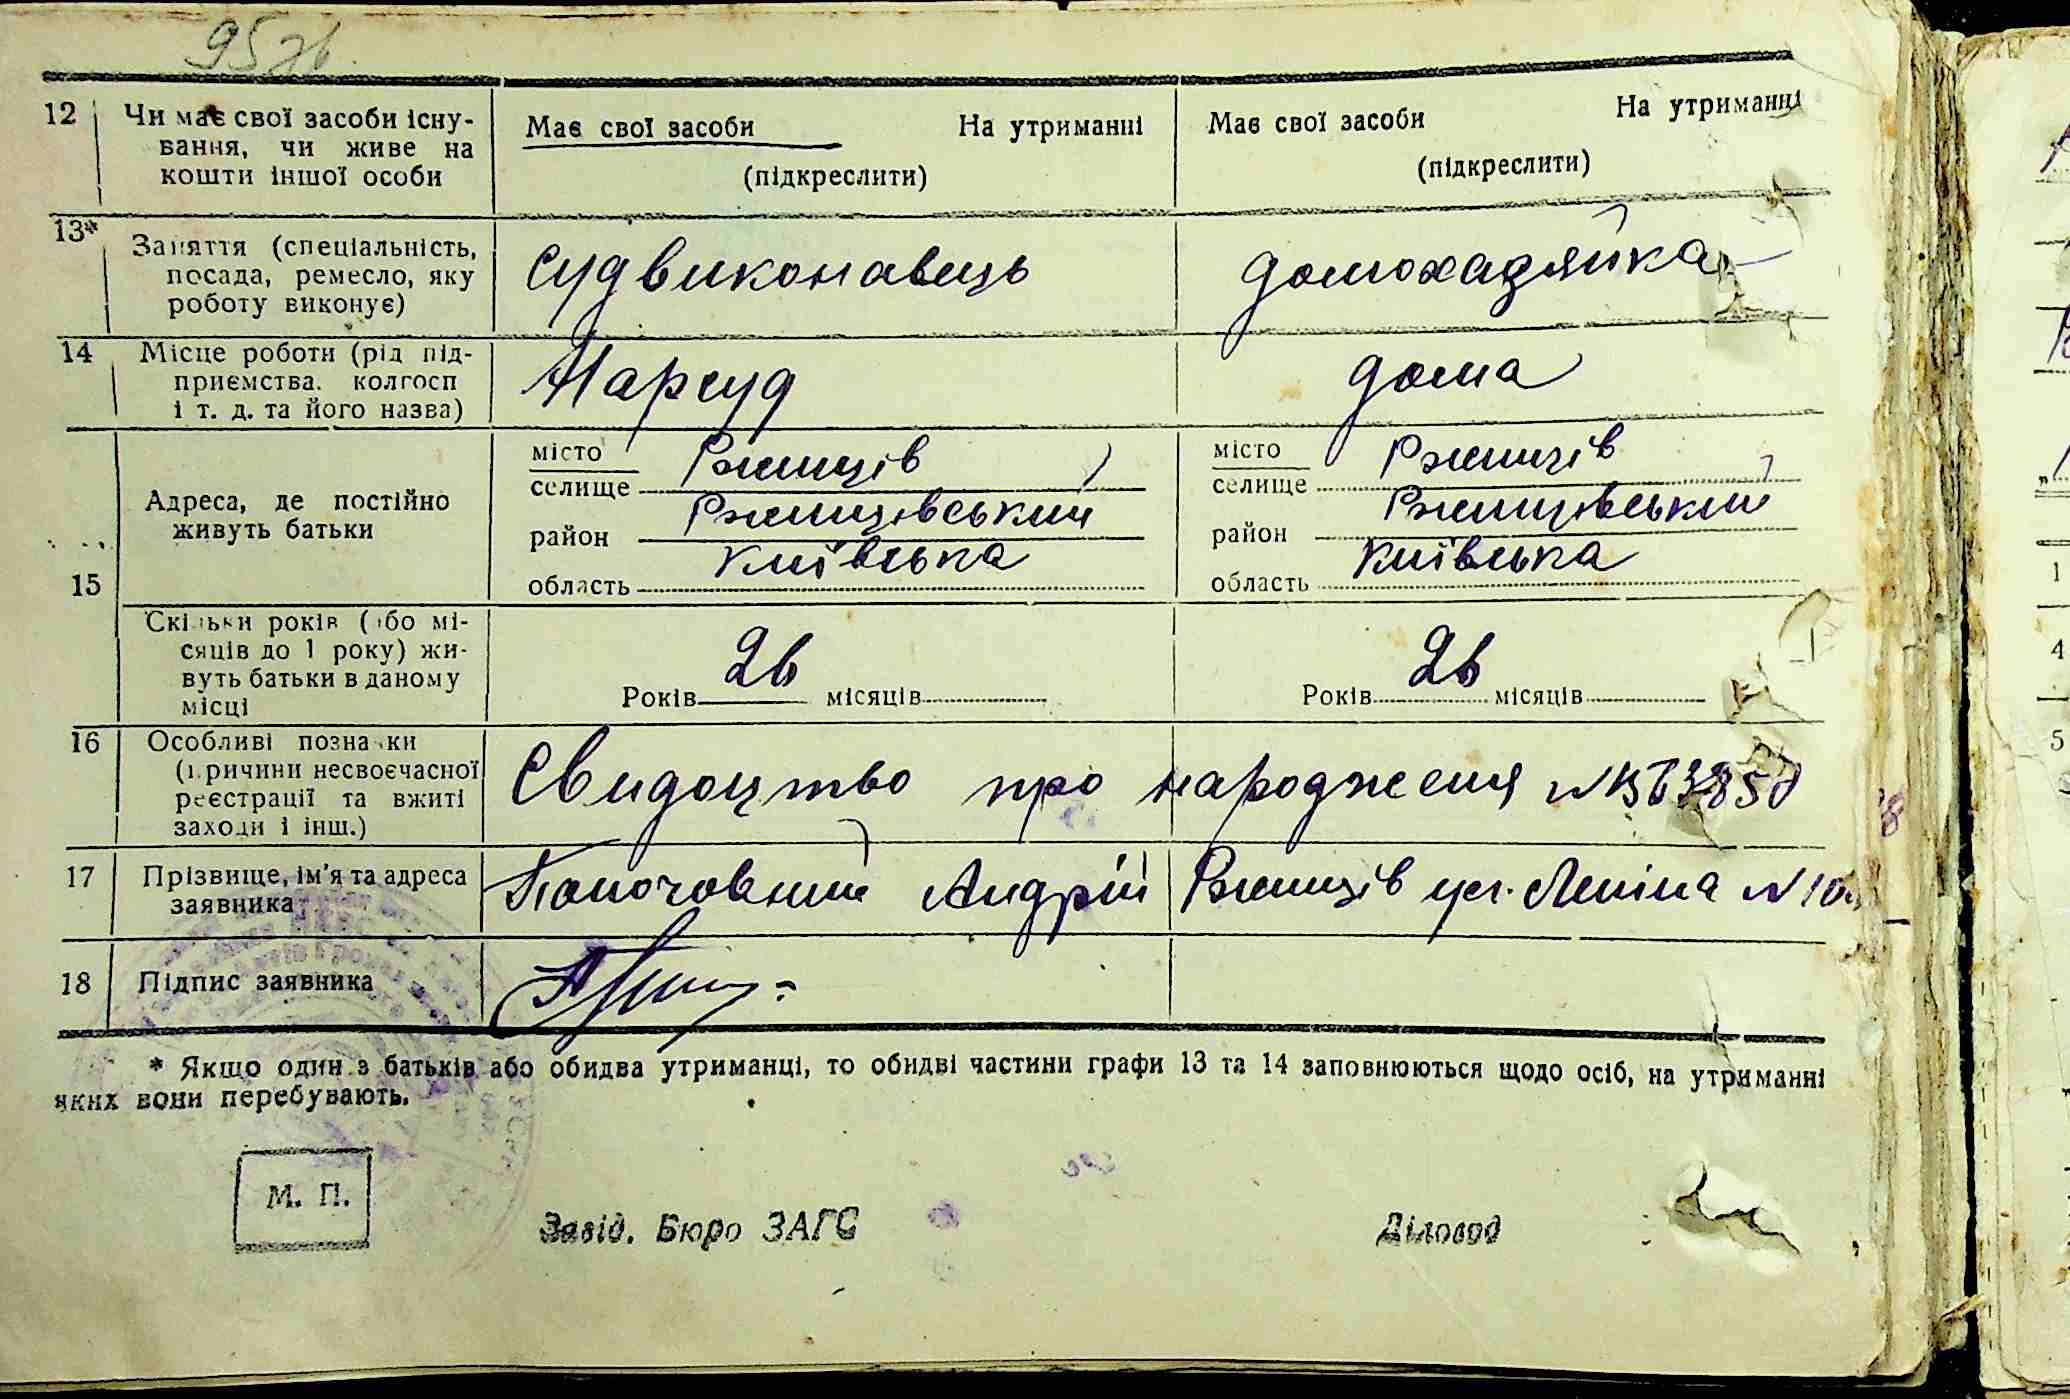 95 зв.
12 Чи має свої засоби існу- Має свої засоби На утриманні Має свої засоби На утриманні
вання, чи живе на (підкреслити) (підкреслити)
кошти іншої особи
13* Заняття (спеціальність, судвиконавець домохазяйка
посада, ремесло, яку
роботу виконує)
14 Місце роботи (рід під- Нарсуд дома
приємства, колгосп
і т. д. та його назва)
15 Адреса, де постійно живуть батьки
місто Ржищів місто Ржищів
селище селище
район Ржищівський район Ржищівський
область Київська область Київська
Скільки років (або мі-
сяців до 1 року) жи-
вуть батьки в даному
місці
Років 26 місяців Років 26 місяців
16 Особливі позначки Свидоцтво про народження №
(причини несвоєчасної
реєстрації та вжиті
заходи і інш.)
17 Прізвище, ім'я та адреса Андрій Ржищів ул. Леніна № 10
заявника
18 Підпис заявника
* Якщо один з батьків або обидва утриманці, то обидві частини графи 13 та 14 заповнюються щодо осіб, на утриманні
яких вони перебувають.
М. П.
Завід. Бюро ЗАГС Діловод